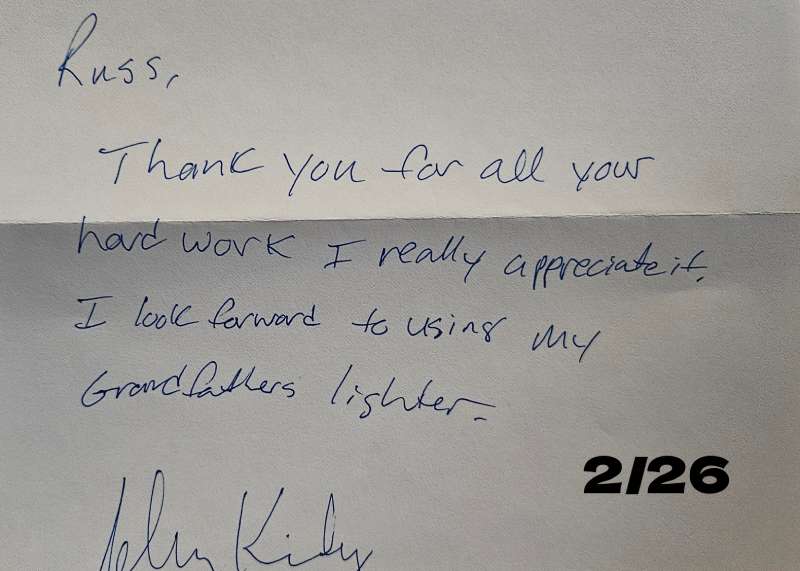 Russ,
Thank you for all your
hard work I really appreciate it.
I look forward to using my
Grandfathers lighter.
2/26